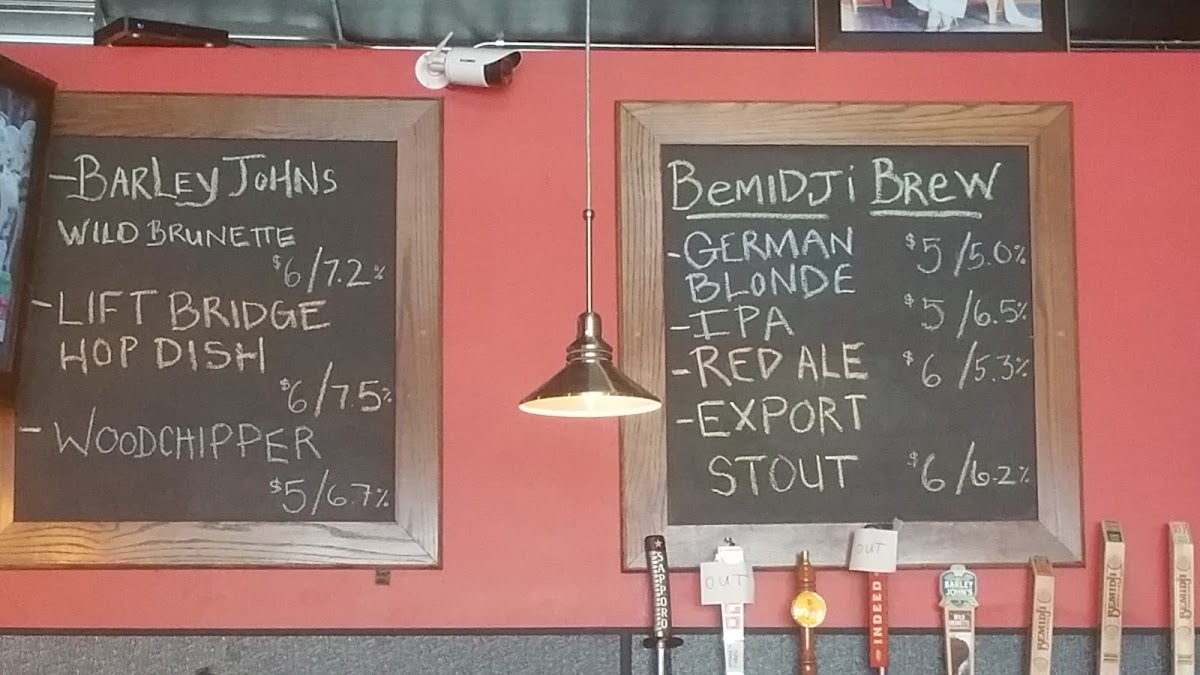 -BARLEY JOHNS
WILD BRUNETTE
$6/7.2%
-LIFT BRIDGE
HOP DISH
$6/7.5%
-WOODCHIPPER
$5/6.7%
BeMIDJi BREW
-GERMAN $5/5.0%
BLONDE
-IPA $5/6.5%
-RED ALE $6/5.3%
-EXPORT
STOUT $6/6.2%
SAPPORO
OUT
OUT
INDEED
BARLEY
JOHN'S
WILD
BRUNETTE
BEMIDJI
BEMIDJI
BEMIDJI